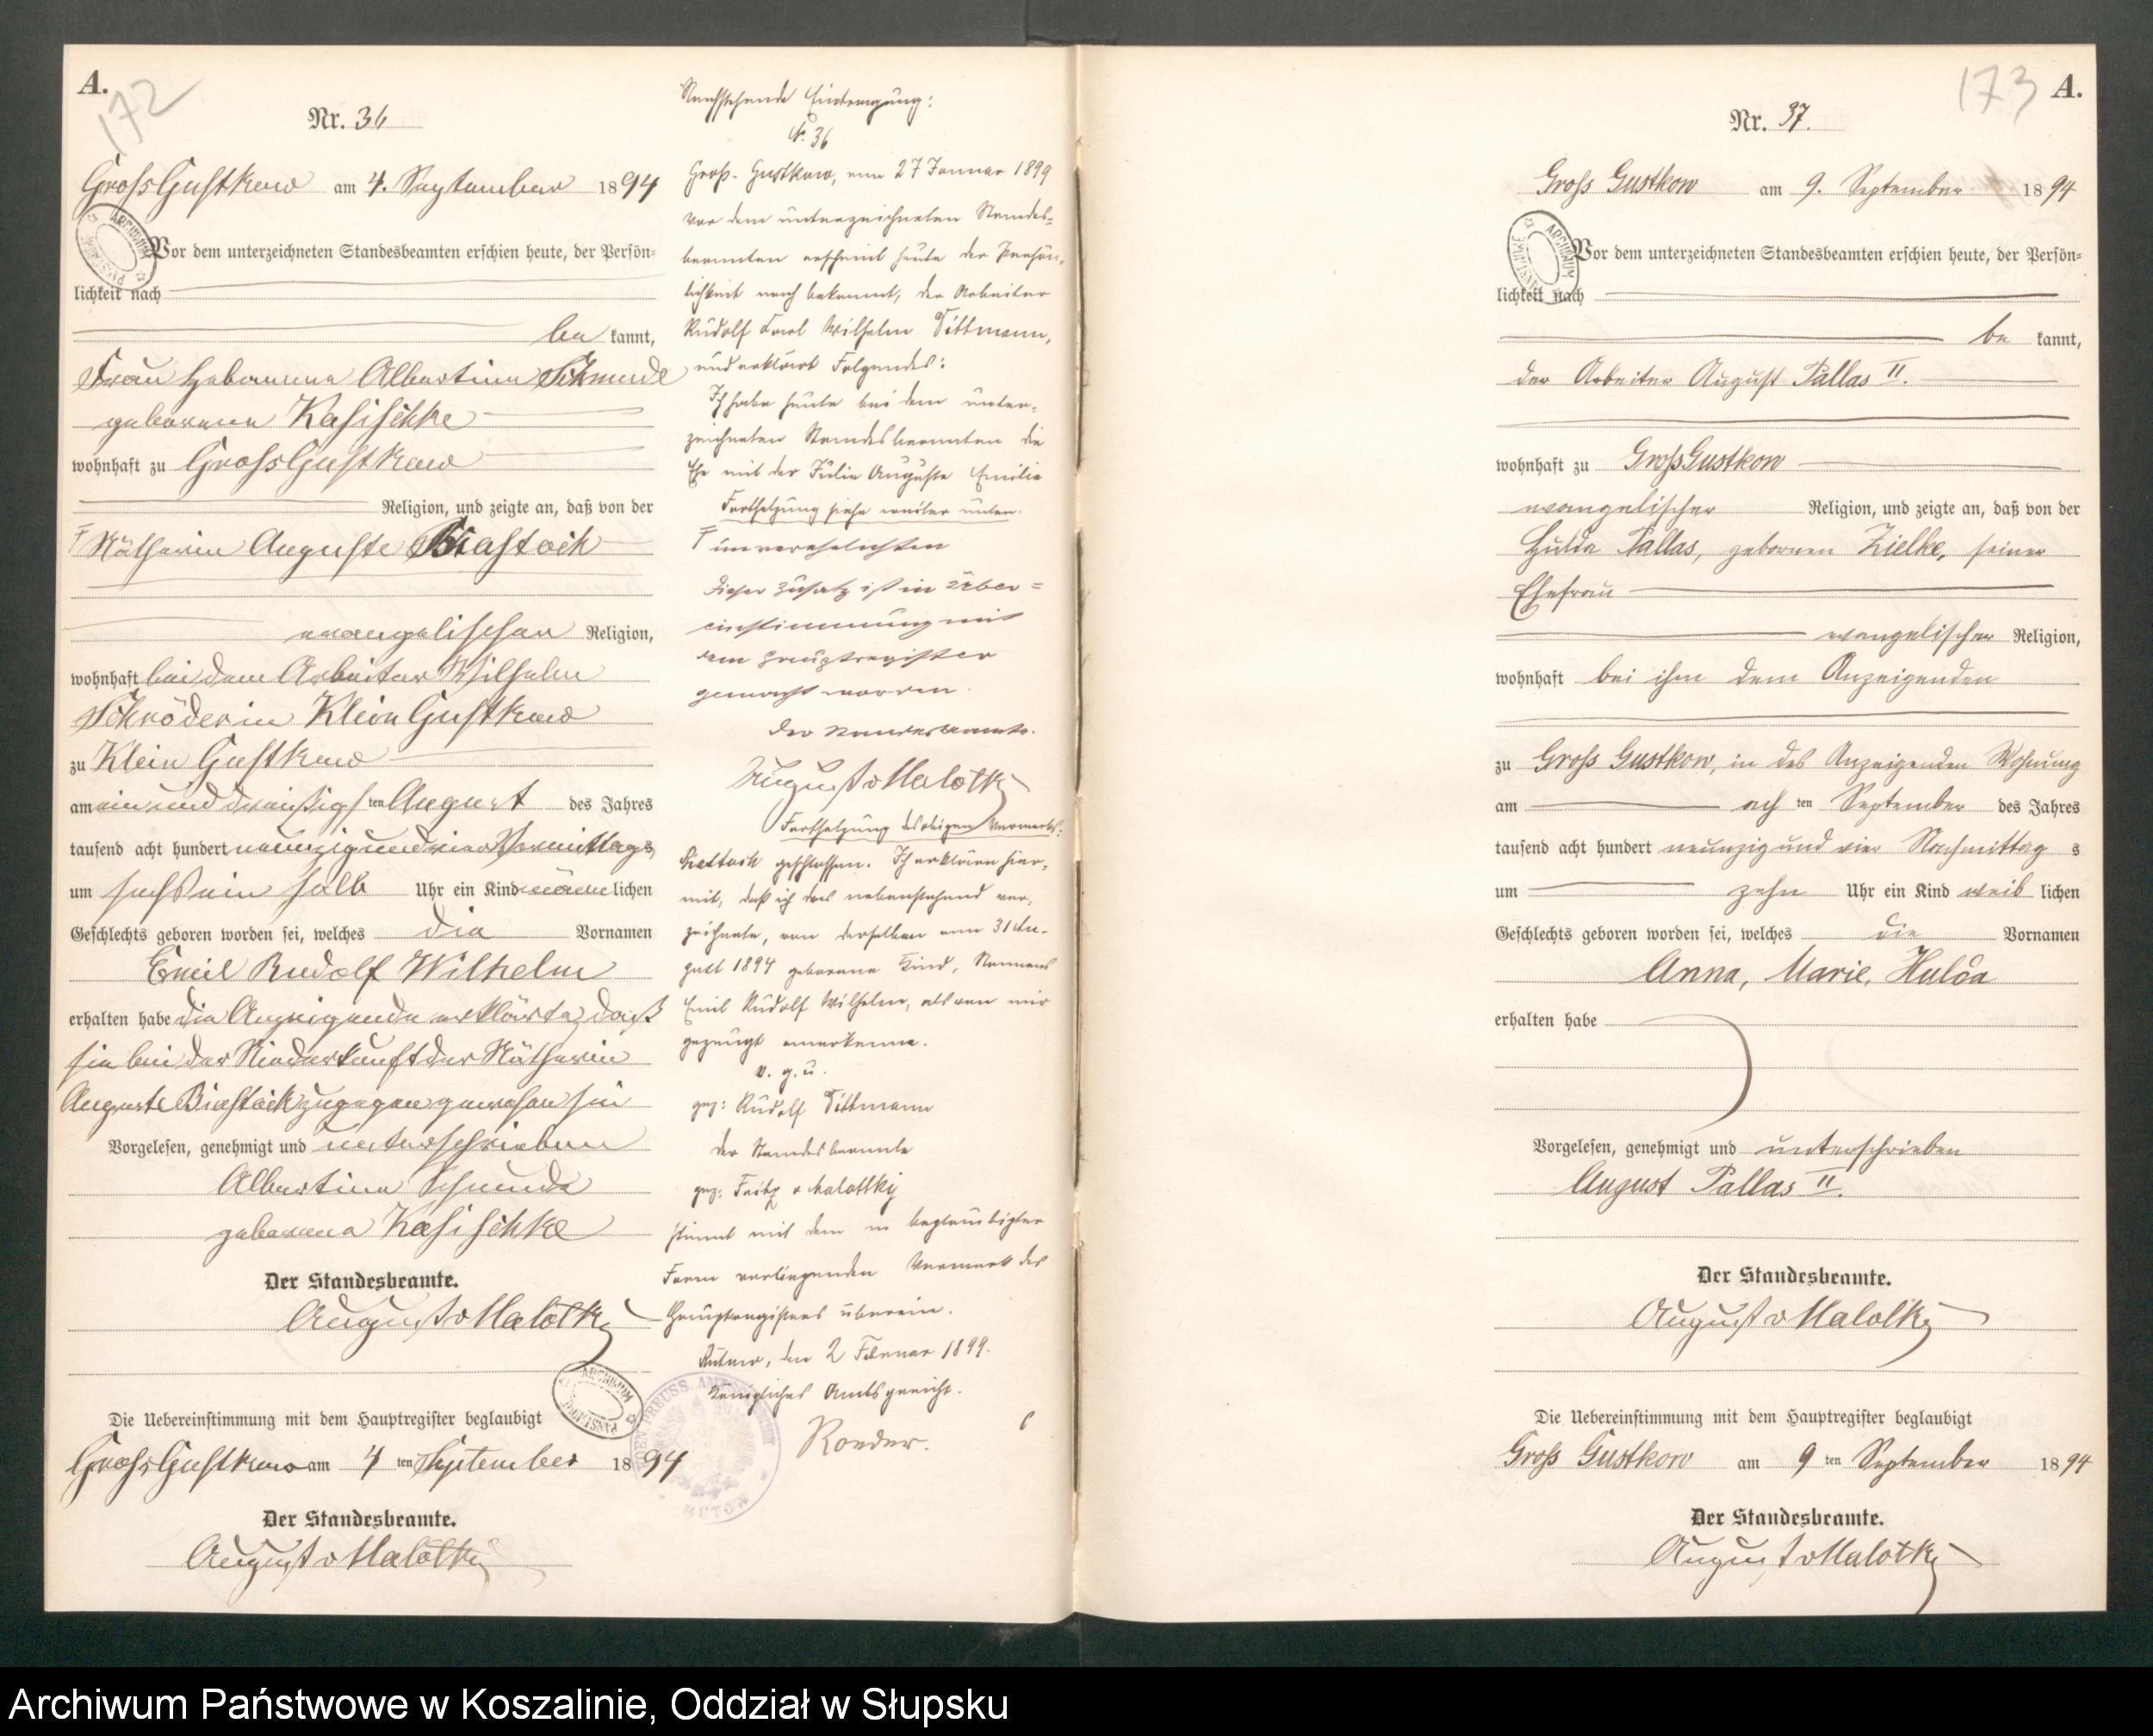 A.
172
Nr. 36
Gross Gustkow am 4. September 1894
Vor dem unterzeichneten Standesbeamten erschien heute, der Persön-
lichkeit nach
be kannt,
Frau Hebamme Albertine Schmude
geborene Kasischke
wohnhaft zu Gross Gustkow
Religion, und zeigte an, daß von der
Nätherin Auguste
evangelischer Religion,
wohnhaft bei dem Arbeiter Wilhelm
Schröder in Klein Gustkow
zu Klein Gustkow
am ein und dreißigsten August des Jahres
tausend acht hundert neunzig und vier Vormittags
um sechs ein halb Uhr ein Kind männlichen
Geschlechts geboren worden sei, welches die Vornamen
Emil Rudolf Wilhelm
erhalten habe die Anzeigende erklärte, daß
sie bei der Niederkunft der Nätherin
Auguste zugegen gewesen sei
Vorgelesen, genehmigt und unterschrieben
Albertine Schmude
geborene Kasischke
Der Standesbeamte.
August v Malottky
Die Uebereinstimmung mit dem Hauptregister beglaubigt
Gross Gustkow am 4 ten September 1894
Der Standesbeamte.
August v Malottky
Nachstehende Eintragung:
N. 36
Groß-Gustkow, am 27 Januar 1899
vor dem unterzeichneten Standes-
beamten erscheint heute der Persön-
lichkeit nach bekannt, der Arbeiter
Rudolf Karl Wilhelm Dittmann,
und erklärt Folgendes:
Ich habe heute bei dem unter-
zeichneten Standesbeamten die
Ehe mit der Julie Auguste Emilie
Fortsetzung siehe weiter unten.
unverehelichten
Dieser Zusatz ist in Über-
einstimmung mit
dem Hauptregister
gemacht worden.
Der Standesbeamte.
August v Malottky
Fortsetzung des obigen Vermerks:
geschlossen. Ich erkläre hier-
mit, daß ich das nebenstehend ver-
zeichnete, von derselben am 31 Au-
gust 1894 geborene Kind, Namens
Emil Rudolf Wilhelm, als von mir
gezeugt anerkenne.
v. g. u.
gez: Rudolf Dittmann
Der Standesbeamte
gez: Fritz v Malottky
stimmt mit dem in beglaubigter
Form vorliegenden Vermerk des
Hauptregisters überein.
Bütow, den 2 Februar 1899.
Königliches Amtsgericht.
Roeder.
173
A.
Nr. 37.
Gross Gustkow am 9. September 1894
Vor dem unterzeichneten Standesbeamten erschien heute, der Persön-
lichkeit nach
be kannt,
der Arbeiter August Pallas II.
wohnhaft zu Gross Gustkow
evangelischer Religion, und zeigte an, daß von der
Hulda Pallas, gebornen Zielke, seiner
Ehefrau
evangelischer Religion,
wohnhaft bei ihm dem Anzeigenden
zu Gross Gustkow, in des Anzeigenden Wohnung
am ach ten September des Jahres
tausend acht hundert neunzig und vier Nachmittag s
um zehn Uhr ein Kind weib lichen
Geschlechts geboren worden sei, welches die Vornamen
Anna, Marie, Hulda
erhalten habe
Vorgelesen, genehmigt und unterschrieben
August Pallas II.
Der Standesbeamte.
August v Malottky
Die Uebereinstimmung mit dem Hauptregister beglaubigt
Gross Gustkow am 9 ten September 1894
Der Standesbeamte.
August v Malottky
Archiwum Państwowe w Koszalinie, Oddział w Słupsku